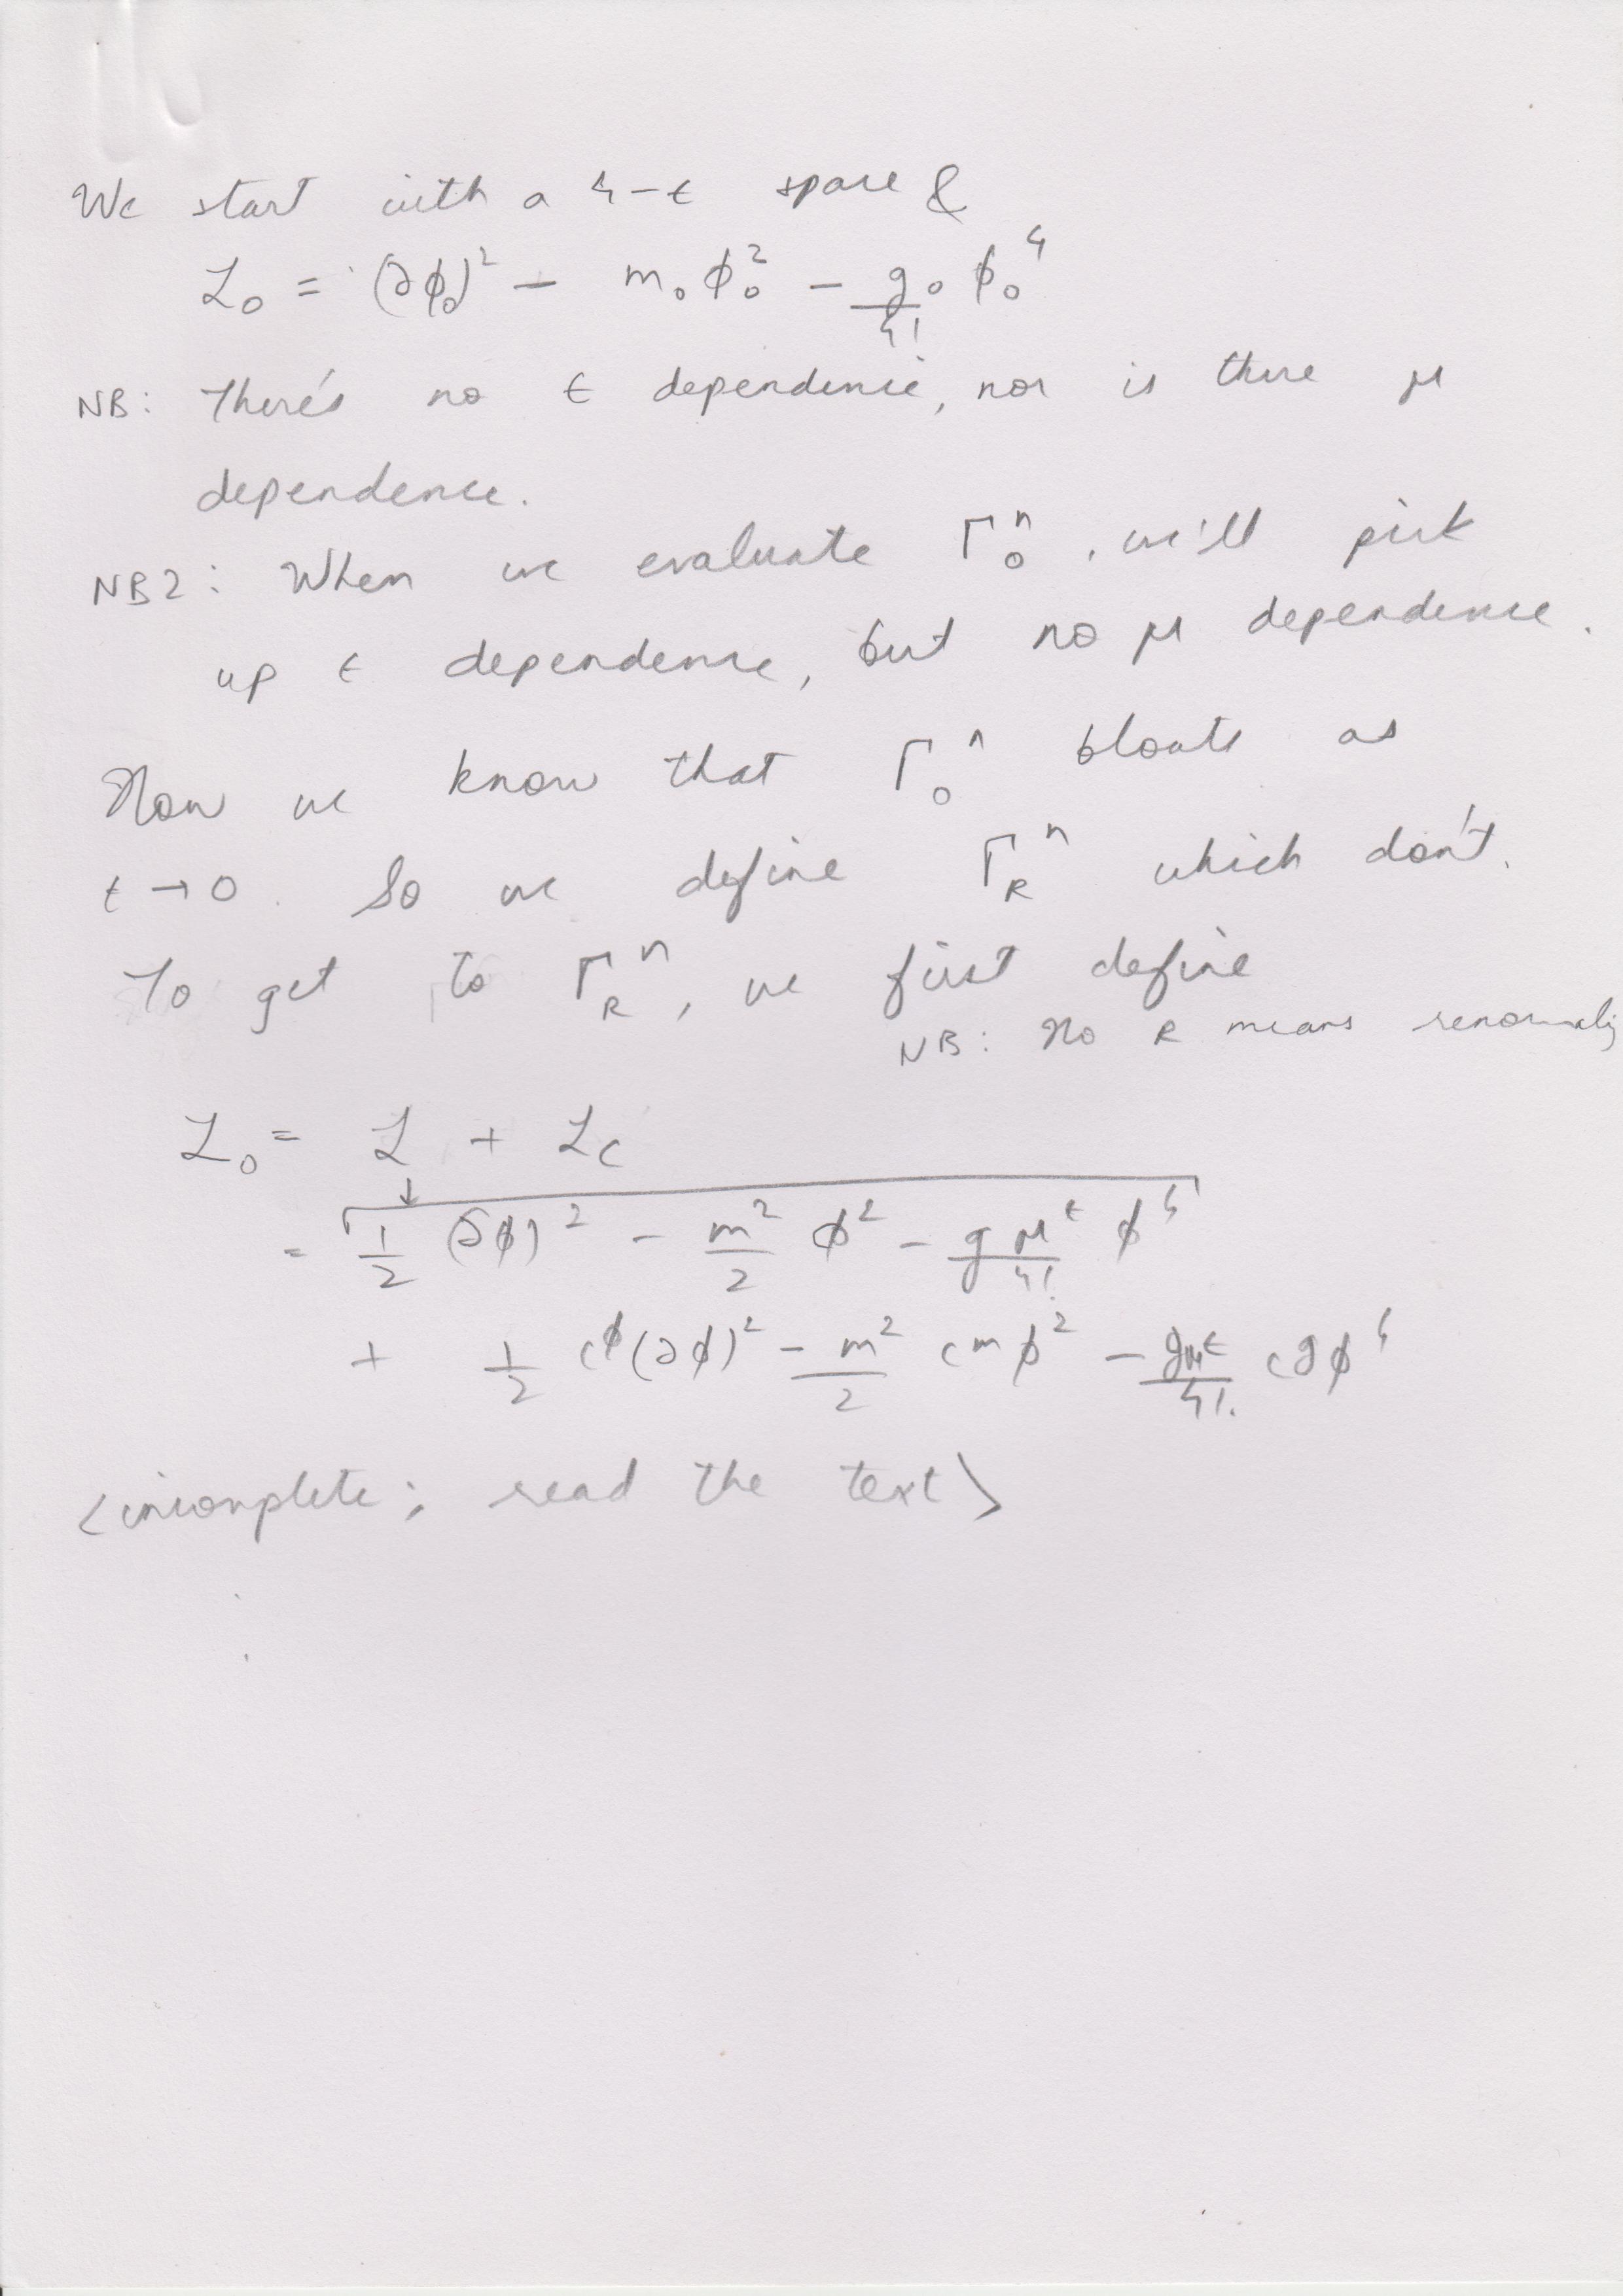 We start with a 4-ϵ space &
ℒ₀ = (∂ϕ₀)² - m₀ ϕ₀² - g₀/4! ϕ₀⁴
NB: There's no ϵ dependence, nor is there μ
dependence.
NB2: When we evaluate Γ₀ⁿ, we'll pick
up ϵ dependence, but no μ dependence.
Now we know that Γ₀ⁿ bloats as
ϵ → 0. So we define Γ_Rⁿ which don't.
To get to Γ_Rⁿ, we first define
NB: No R means renormaliz
ℒ₀ = ℒ + ℒ_c
↓
= 1/2 (∂ϕ)² - m²/2 ϕ² - g μ^ϵ/4! ϕ⁴
+ 1/2 c^ϕ (∂ϕ)² - m²/2 c^m ϕ² - gμ^ϵ/4! c^g ϕ⁴
<incomplete; read the text>